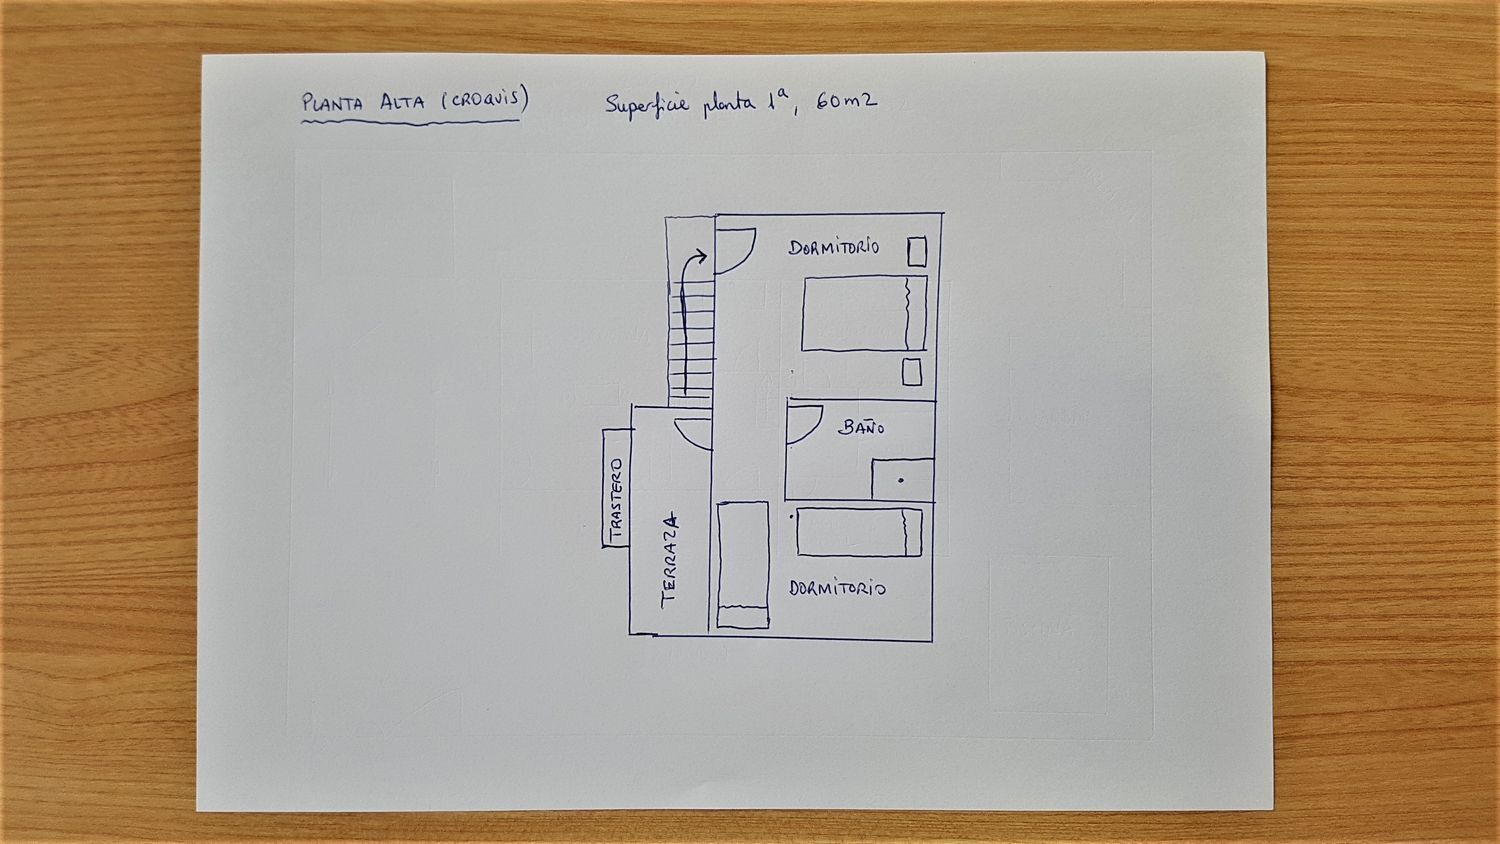 PLANTA ALTA (CROQUIS)
Superficie planta 1ª, 60m2
DORMITORIO
BAÑO
TRASTERO
TERRAZA
DORMITORIO